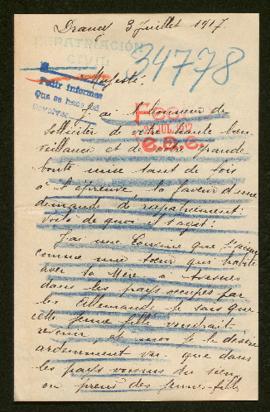 Drancy 3 Juillet 1917
REPATRIACIÓN
34778
Majesté
Pedir informes
Que se haga
J'ai l'honneur de
solliciter de votre haute bien
veillance et de votre grande
bonté mise tant de fois
à l'épreuve la faveur d'une
demande de rapatriement:
voilà de quoi il s'agit:
J'ai une Cousine que j'aime
comme une soeur qui habite
avec sa Mère à
dans les pays occupés par
les Allemands je sais que
cette jeune fille voudrait
revenir et moi je le désire
ardemment car que dans
les pays voisins du sien
on prend des jeunes filles